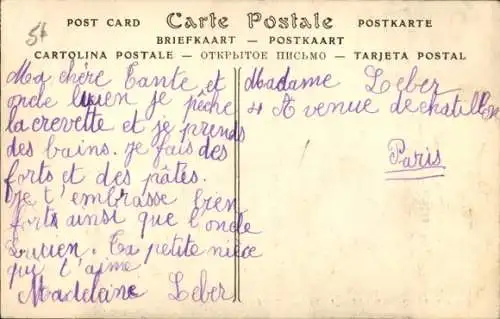 5f
POST CARD Carte Postale POSTKARTE
BRIEFKAART — POSTKAART
CARTOLINA POSTALE — ОТКРЫТОЕ ПИСЬМО — TARJETA POSTAL
Ma chère Tante et
oncle lucien je pêche
la crevette et je prends
des bains. Je fais des
forts et des pâtés.
Je t'embrasse bien
forts ainsi que l'oncle
Lucien. Ta petite nièce
qui t'aime
Madeleine Leber
Madame Leber
Avenue de
Paris